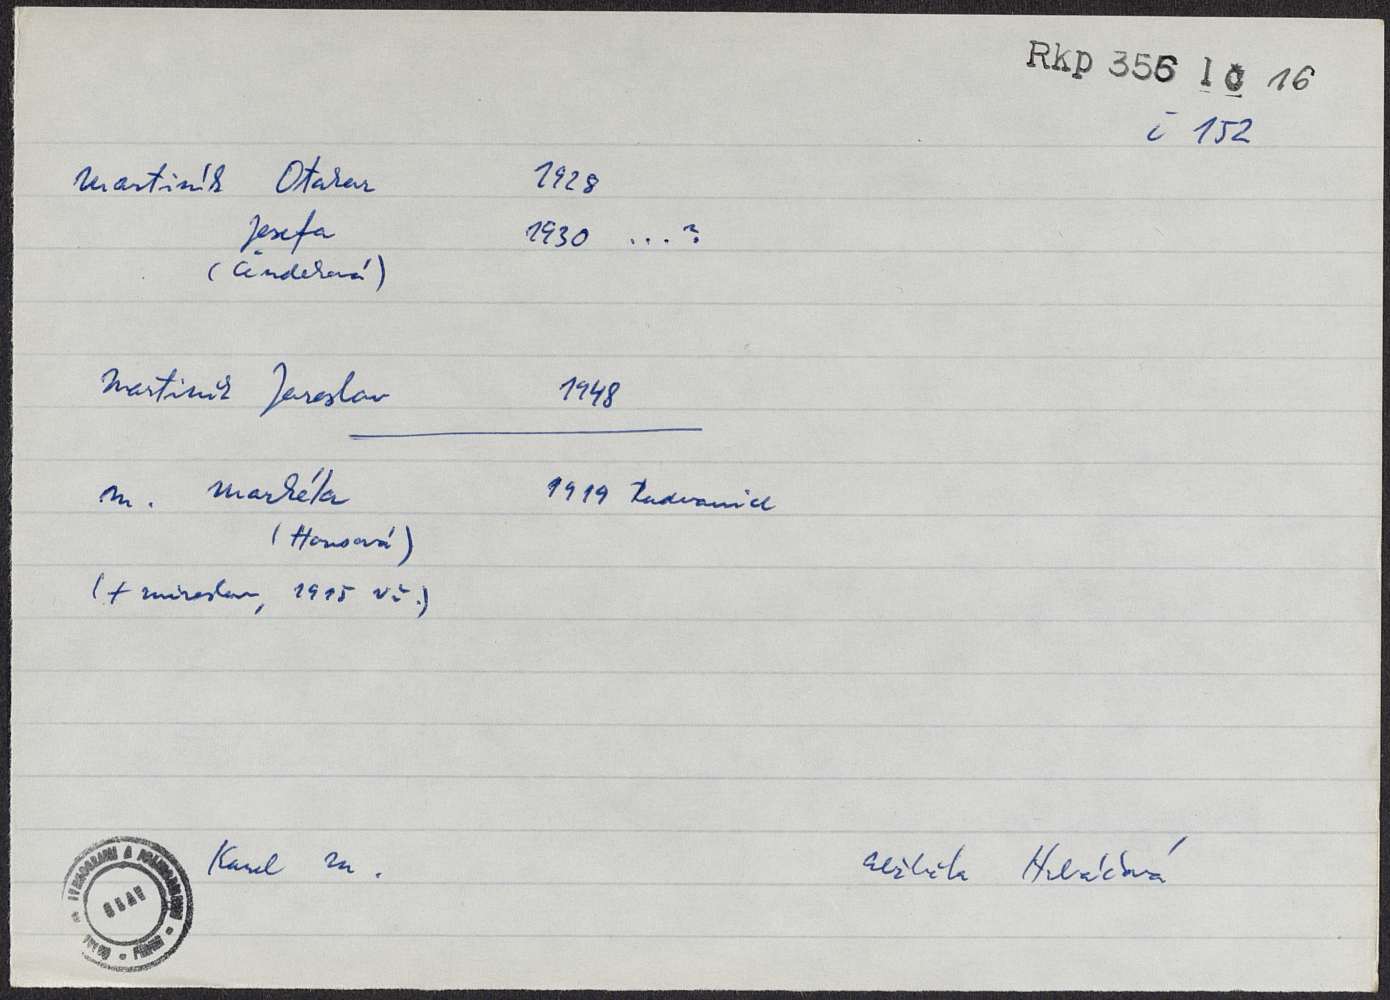 Rkp 356 1č 16
i 152
Martiník Otakar 1928
Josefa 1930 ...?
(Činderová)
Martiník Jaroslav 1948
m. Markéta 1919 Radvanice
(Honsová)
(+ Miroslav, 1915 vč.)
Karel m.
Alžběta